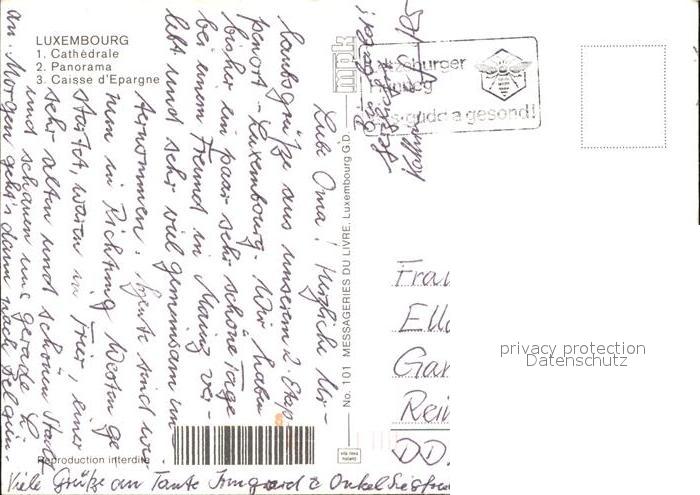 LUXEMBOURG
1. Cathédrale
2. Panorama
3. Caisse d'Epargne
mpk
burger
gudd a gesond!
Liebe Oma! Herzliche Ur-
laubsgrüße aus unserem 2. Etap
penort - Luxembourg. Wir haben
bisher ein paar sehr schöne Tage
bei einem Freund in Mainz ver-
lebt und sehr viel gemeinsam un
ternommen. Heute sind wir
nun in Richtung Westen ge
startet, waren in Trier, einer
sehr alten und schönen Stadt
und schauen uns gerade L.
an. Morgen geht's dann nach Belgien.
Viele Grüße an Tante Irmgard & Onkel Siegfried
No. 101 MESSAGERIES DU LIVRE, Luxembourg G.D.
Reproduction interdite
Frau
Ella
Gar
Rei
DD.
privacy protection
Datenschutz